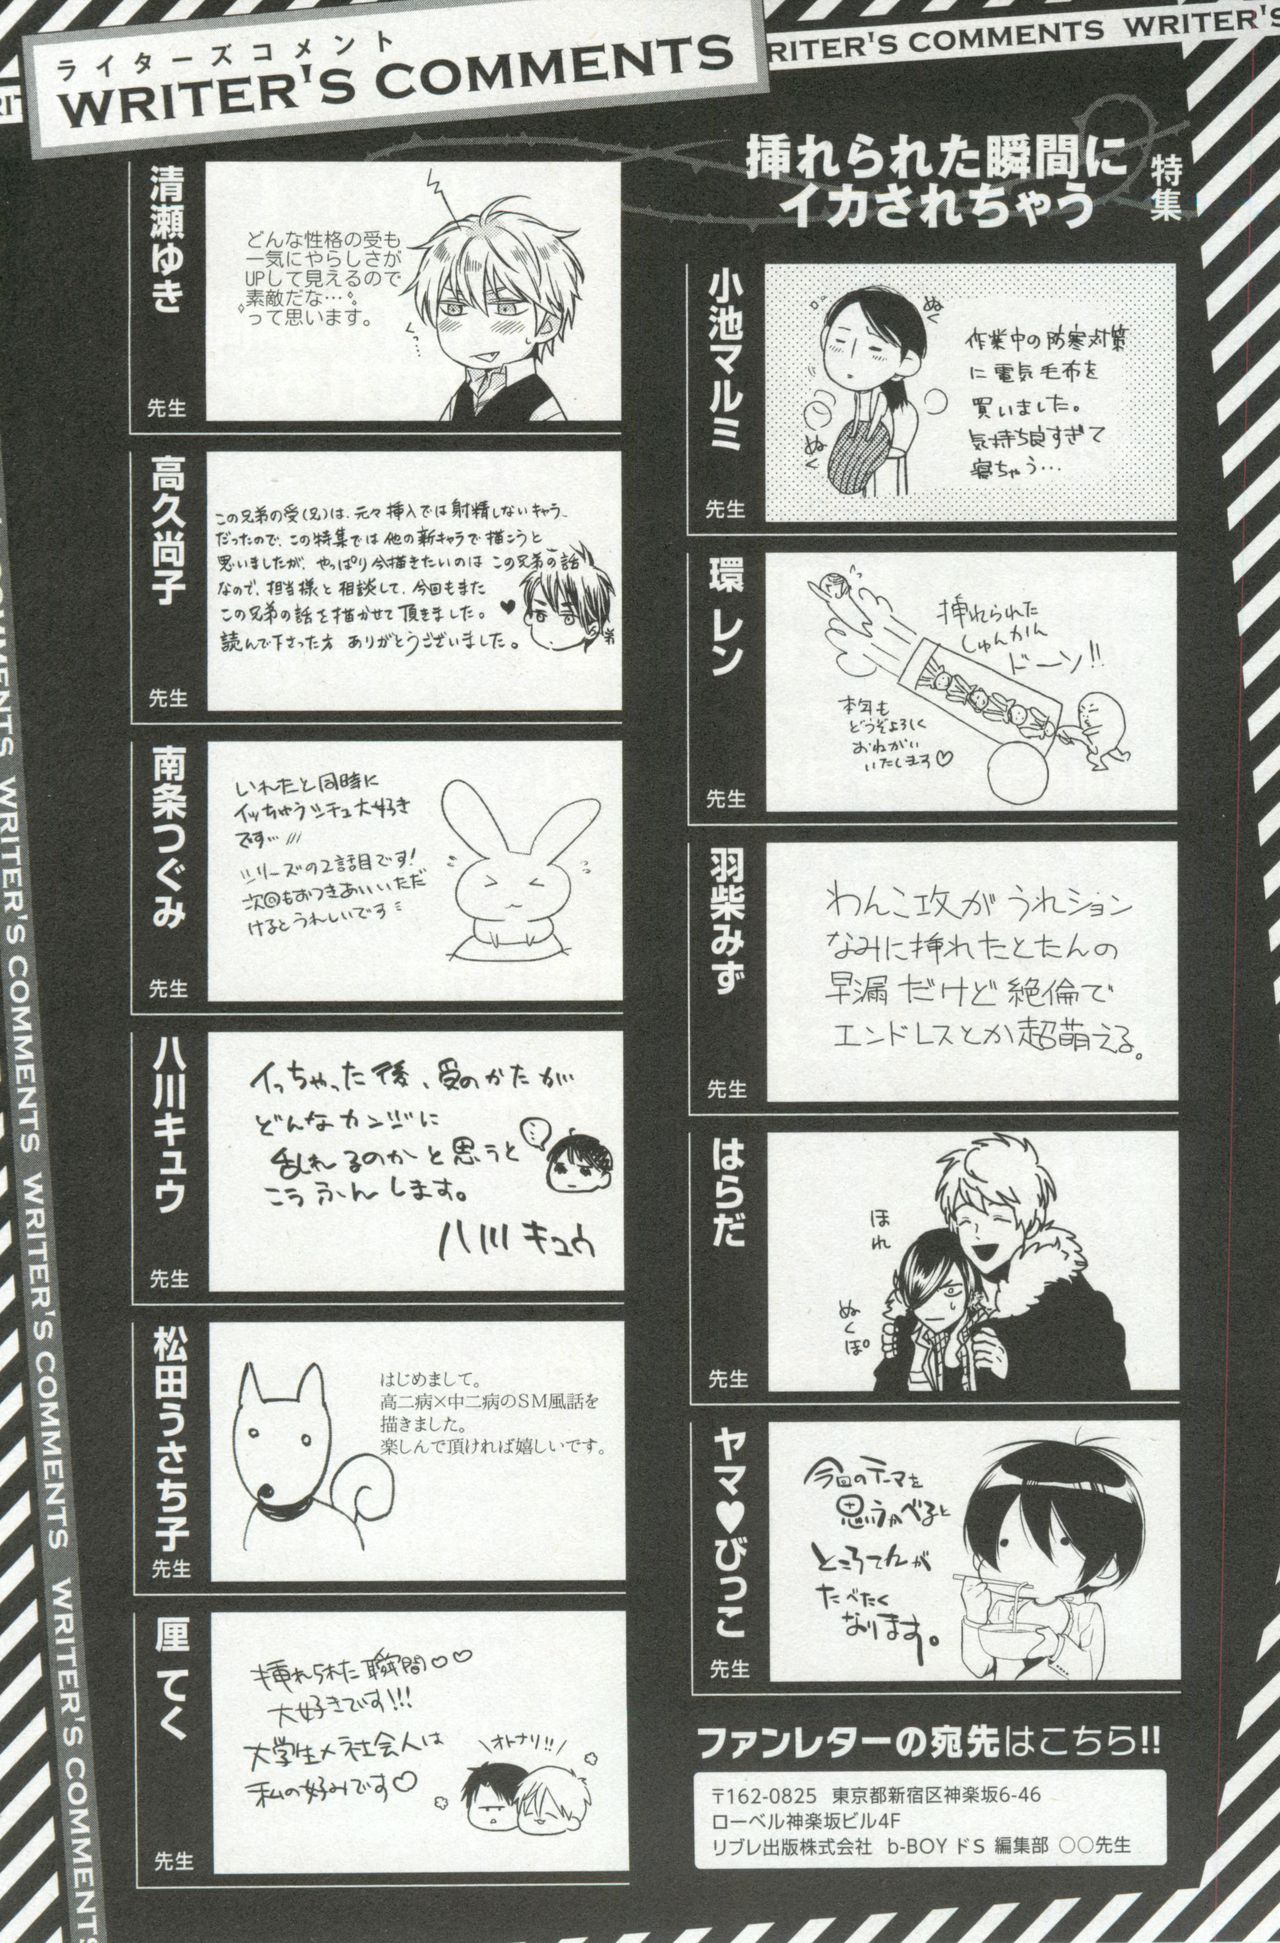 ライターズコメント
WRITER'S COMMENTS
RITER'S COMMENTS WRITER'S
特集
挿れられた瞬間に
イカされちゃう
小池マルミ
先生
ぬく
ぬく
作業中の防寒対策
に電気毛布を
買いました。
気持ち良すぎて
寝ちゃう…
環 レン
先生
挿れられた
しゅんかん
ドーン!!
本年も
どうぞよろしく
おねがい
いたします♡
羽柴みず
先生
わんこ攻がうれション
なみに挿れたとたんの
早漏だけど絶倫で
エンドレスとか超萌える。
はらだ
先生
ほれ
ぬくぽ
ヤマ♥びっこ
先生
今回のテーマを
思いうかべると
ところてんが
たべたく
なります。
清瀬ゆき
先生
どんな性格の受も
一気にやらしさが
UPして見えるので
素敵だな…。
って思います。
くっ…
高久尚子
先生
この兄弟の受(兄)は、元々挿入では射精しないキャラ
だったので、この特集では他の新キャラで描こうと
思いましたが、やっぱり今描きたいのはこの兄弟の話
なので、担当様と相談して、今回もまた
この兄弟の話を描かせて頂きました。
読んで下さった方 ありがとうございました。
弟
南条つぐみ
先生
いれたと同時に
イッちゃうシチュ大好き
です…
シリーズの2話目です!
次回もおつきあいいただ
けるとうれしいです
八川キュウ
先生
イっちゃった後、受のかたが
どんなカンジに
乱れるのかと思うと
こうふんします。
八川キュウ
松田うさち子
先生
はじめまして。
高二病×中二病のSM風話を
描きました。
楽しんで頂ければ嬉しいです。
厘 てく
先生
挿れられた瞬間♡♡
大好きです!!!
大学生×社会人は
私の好みです♡
オトナリ!!
ファンレターの宛先はこちら!!
〒162-0825 東京都新宿区神楽坂6-46
ローベル神楽坂ビル4F
リブレ出版株式会社 b-BOY ドS 編集部 ○○先生
WRITER'S COMMENTS WRITER'S COMMENTS WRITER'S COMMENTS